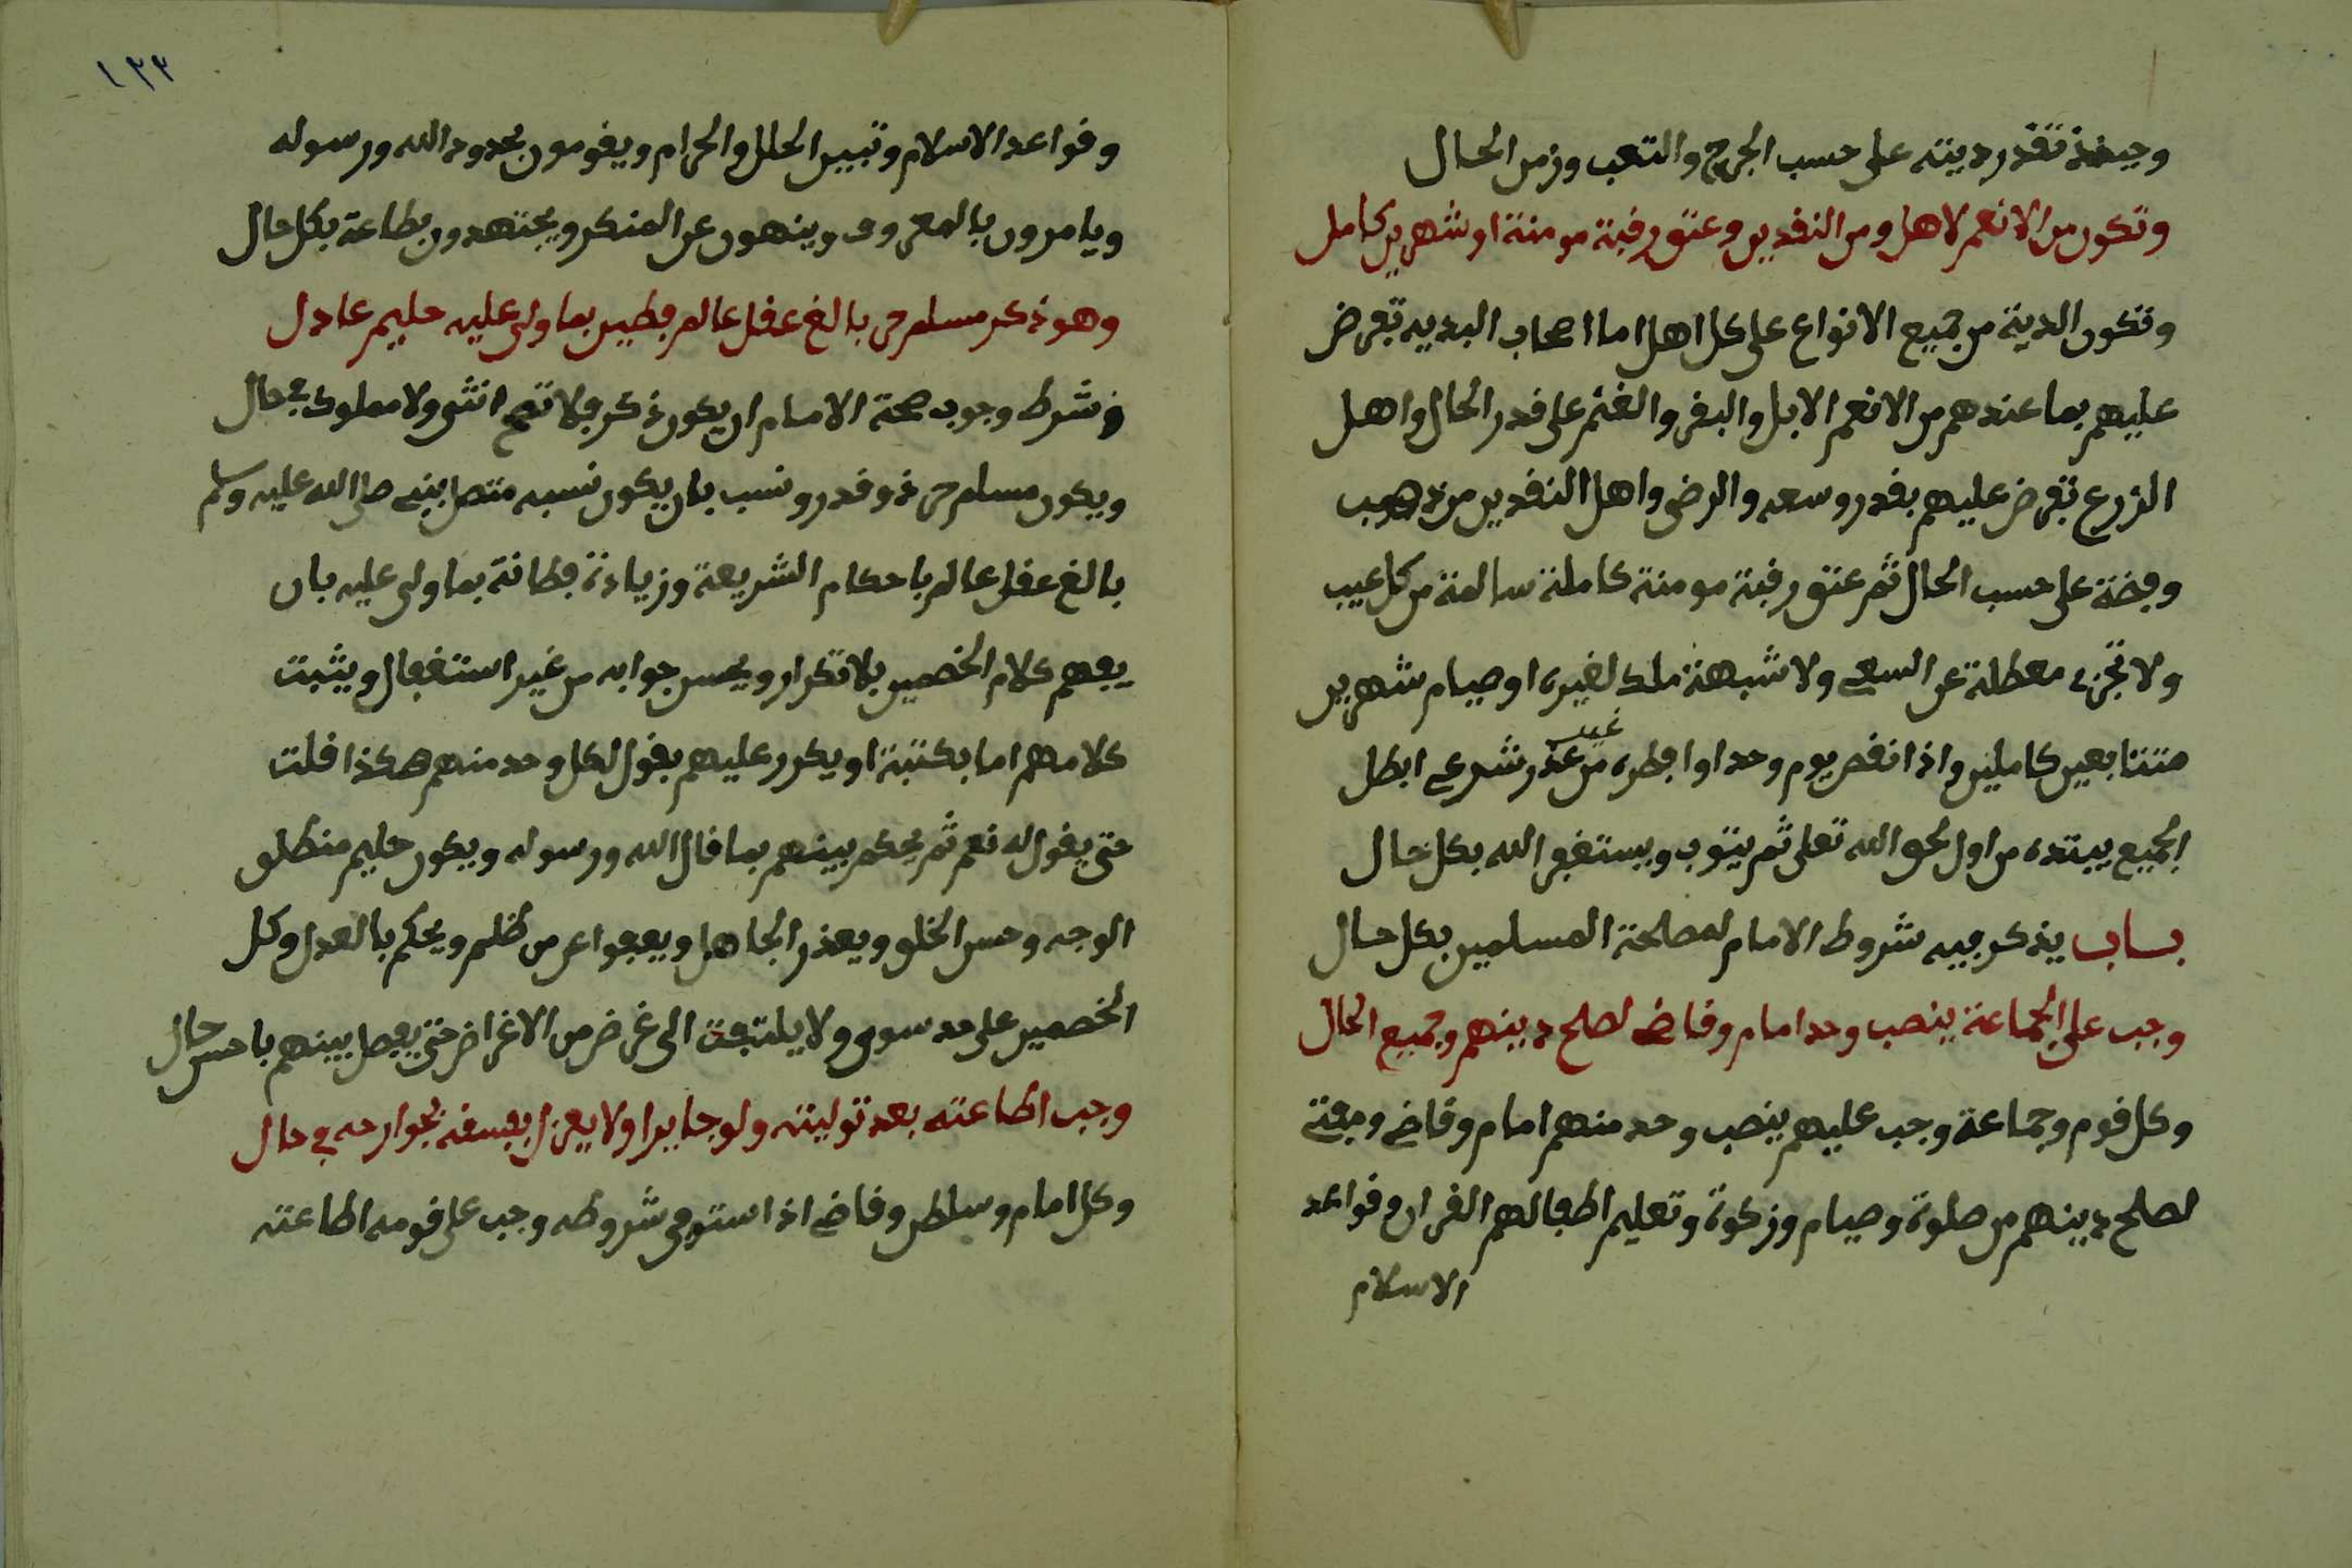 وحينئذ تقدر ديته على حسب الجرح والتعب وزمن الحال
وتكون من الانعم لاهل ومن النقدين وعتق رقبة مومنة او شهرين كامل
وتكون الدية من جميع الانواع على كل اهل اما اصحاب البدية تعرض
عليهم بما عندهم من الانعم الابل والبقر والغنم على قدر الحال واهل
الزرع تعرض عليهم بقدر وسعه والرضى واهل النقدين من ذهب
وفضة على حسب الحال ثم عتق رقبة مومنة كاملة سالمة من كل عيب
ولا تجزء معطلة عن السعي ولا شبهة ملك لغيره او صيام شهرين
متتابعين كاملين واذا نقص يوم وحد او افطره من غير عذر شرعي ابطل
الجميع يبتده من اول لحق الله تعلى ثم يتوب ويستغفر الله بكل حال
بساب يذكر فيه شروط الامام لمصلحة المسلمين بكل حال
وجب على الجماعة ينصب وحد امام وقاضي لصلح دينهم وجميع الحال
وكل قوم وجماعة وجب عليهم ينصب وحد منهم امام وقاضي ومفتي
لصلح دينهم من صلوة وصيام وزكوة وتعليم اطفالهم القران وقواعد
الاسلام
١٣٣
وقواعد الاسلام وتبيين الحلل والحرام ويقومون بحدود الله ورسوله
ويامرون بالمعروف وينهون عن المنكر ويجتهدون بطاعة بكل حال
وهو ذكر مسلم حر بالغ عقل عالم فطين بما ولى عليه حليم عادل
وشرط وجوب صحة الامام ان يكون ذكر فلا تصح انثى ولا مملوك في حال
ويكون مسلم حر ذو قدر ونسب بان يكون نسبه متصل بنبي صلى الله عليه وسلم
بالغ عقل عالم باحكام الشريعة وزيادة فطانة بما ولى عليه بان
يفهم كلام الخصمين بلا تكرار ويحسن جوابه من غير استغفال ويثبت
كلامهم اما بكتبة او يكرر عليهم بقول لكل وحد منهم هكذا قلت
حتى يقول له نعم ثم يحكم بينهم بما قال الله ورسوله ويكون حليم منطلق
الوجه وحسن الخلق ويعذر الجاهل ويعفوا عن من ظلم ويحكم بالعدل وكل
الخصمين على حد سوى ولا يلتفت الى غرض من الاغراض حتى يفصل بينهم باحسن حال
وجب اطاعته بعد توليته ولو جايرا ولا يعزل بفسقه بجوارحه في حال
وكل امام وسلطن وقاضي اذا استوفى شروطه وجب على قومه اطاعته